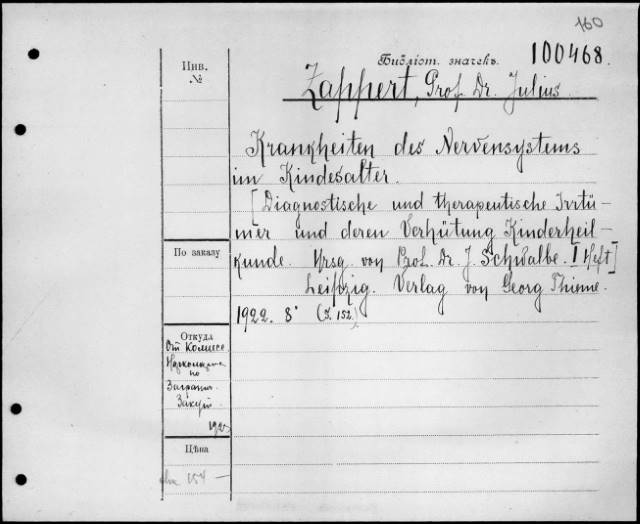 160
Инв.
№
Библіот. значекъ. 100468.
Zappert, Prof. Dr. Julius.
Krankheiten des Nervensystems
im Kindesalter.
[Diagnostische und therapeutische Irrtü-
mer und deren Verhütung Kinderheil-
kunde. Hrsg. von Prof. Dr. J. Schwalbe. I Heft]
Leipzig. Verlag von Georg Thieme.
1922. 8° (S. 152.)
По заказу
Откуда
От Комисс.
по
Загранич.
Закуп.
Цѣна
154 —